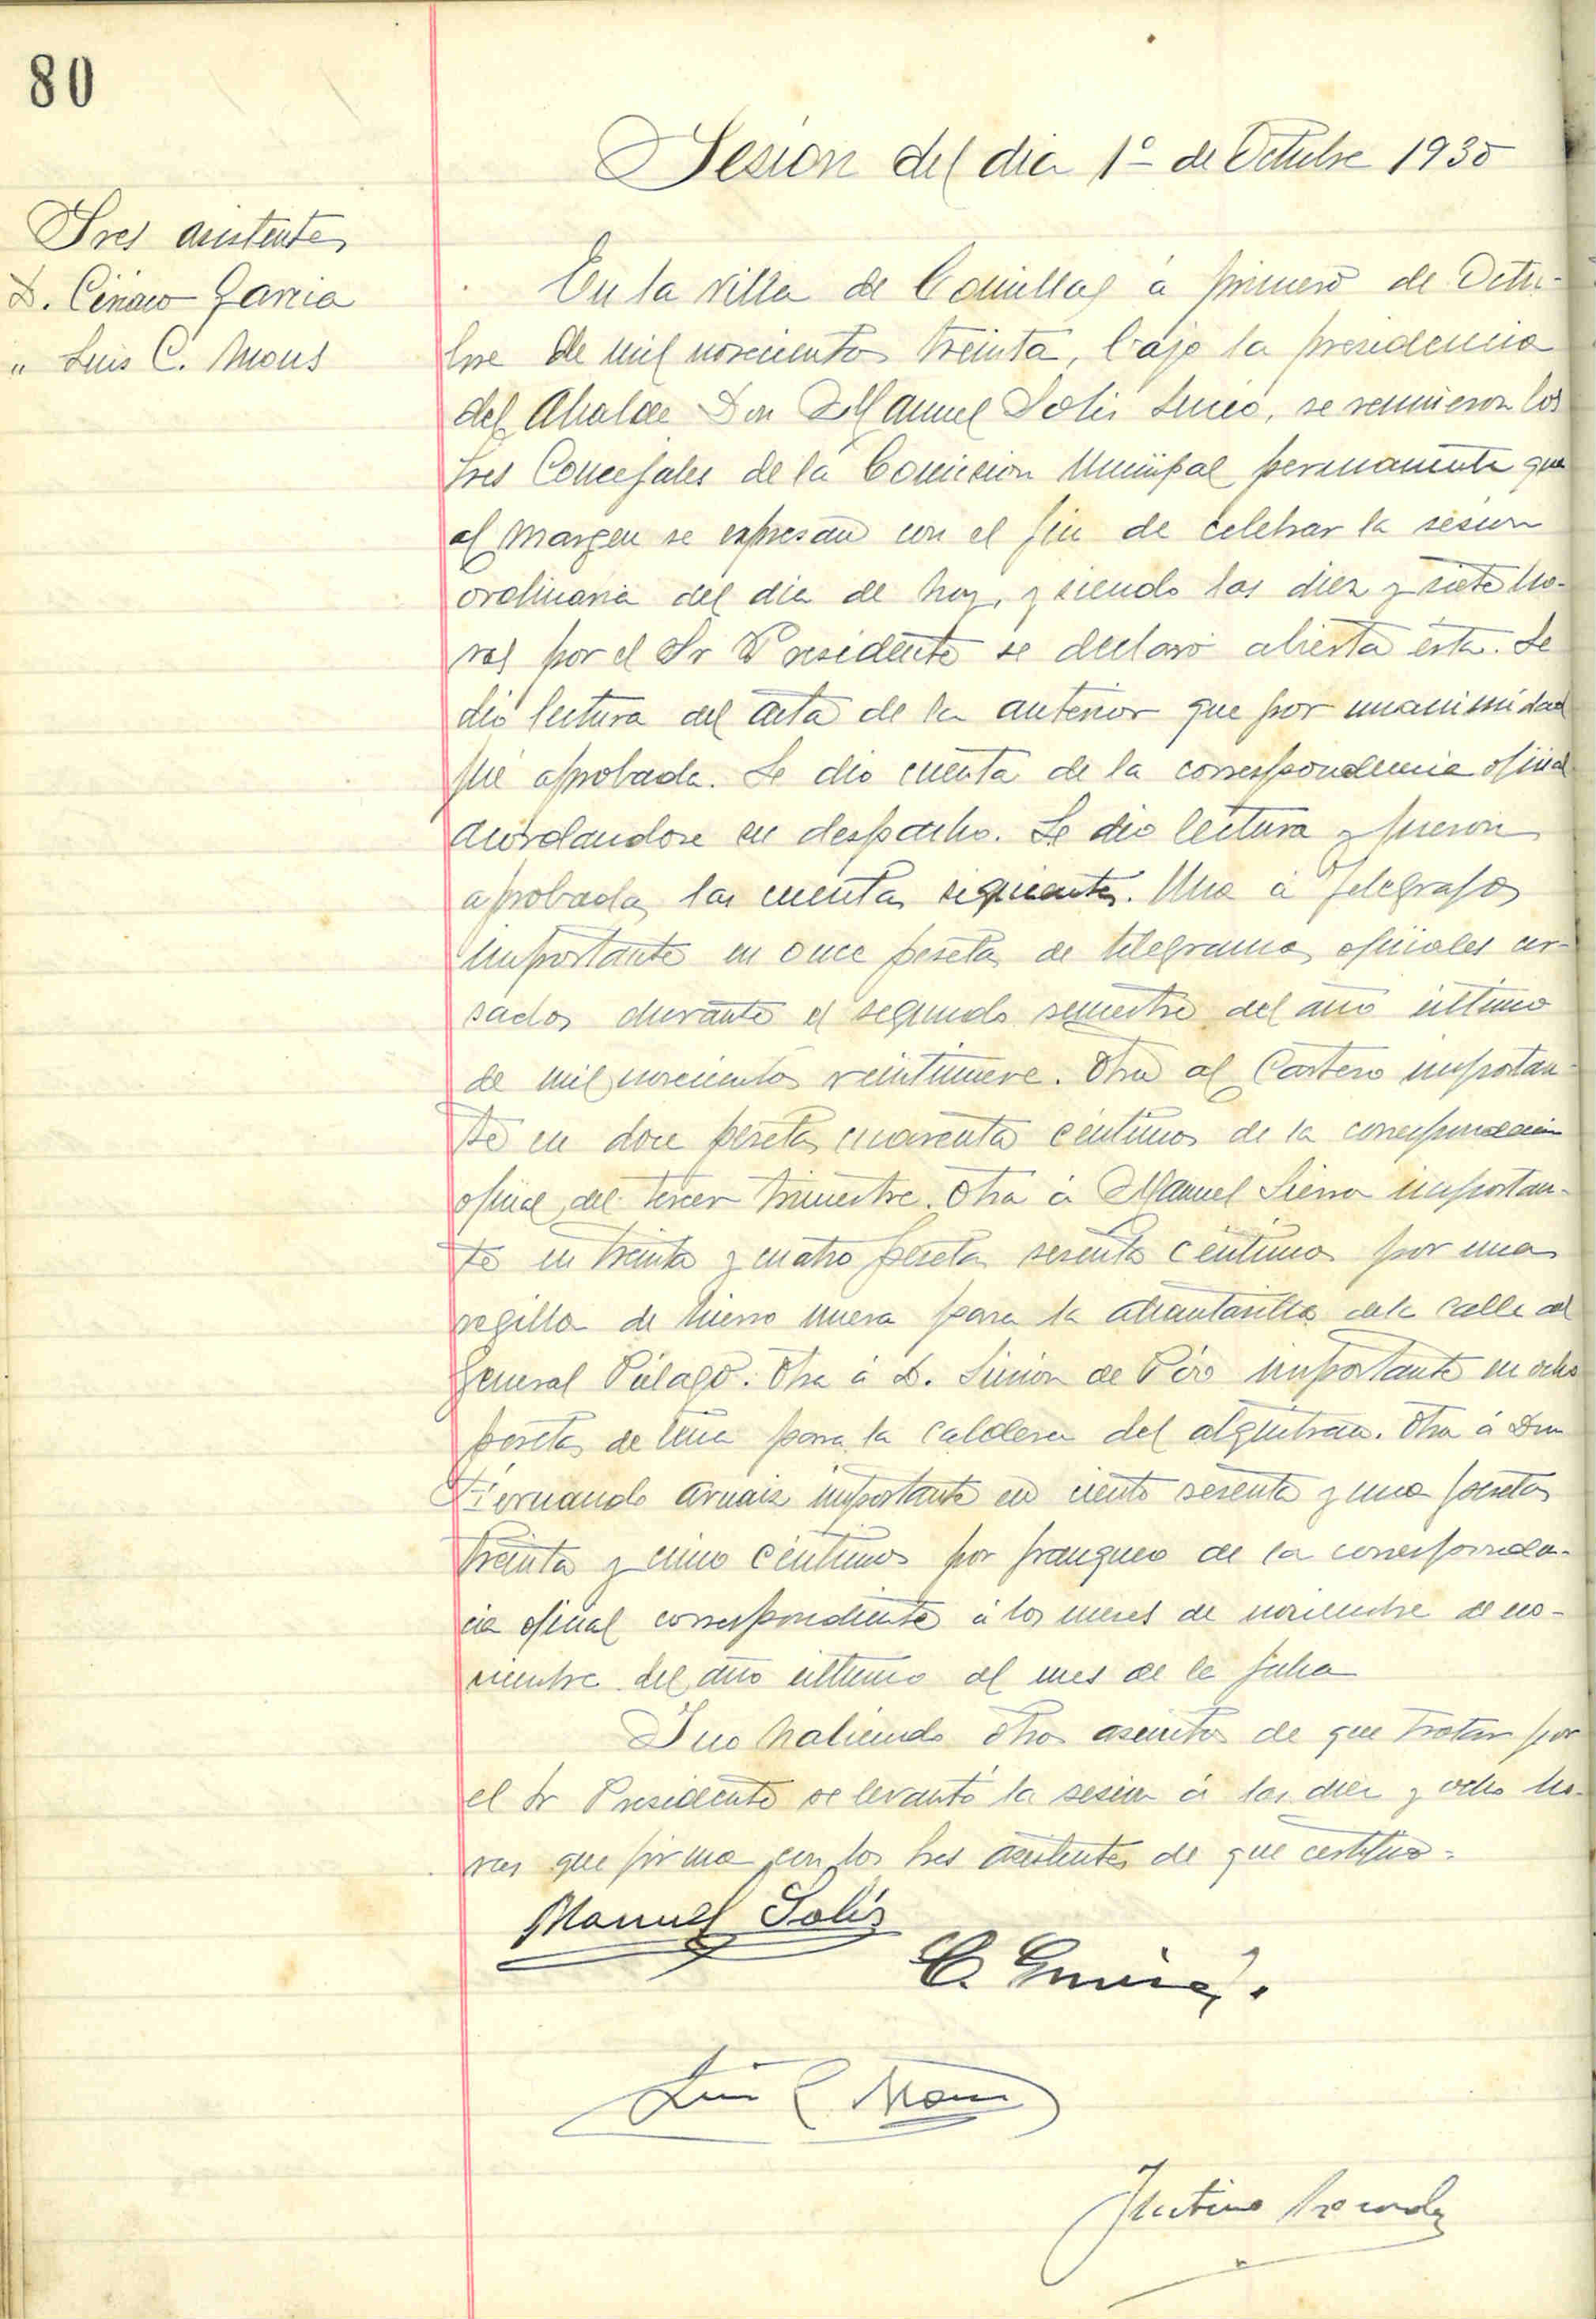 80
Sesion del dia 1º de Octubre 1930
Sres asistentes
D. Ciriaco Garcia
" Luis C. Mons
En la villa de Comillas á primero de Octu-
bre de mil novecientos treinta, bajo la presidencia
del Alcalde Don Manuel Solis Lucio, se reunieron los
Sres Concejales de la Comision Municipal permanente que
al margen se expresan con el fin de celebrar la sesion
ordinaria del dia de hoy, y siendo las diez y siete ho-
ras por el Sr Presidente se declaró abierta esta. Se
dió lectura del acta de la anterior que por unanimidad
fué aprobada. Se dio cuenta de la correspondencia oficial
acordandose su despacho. Se dio lectura y fueron
aprobadas las cuentas siguientes. Una á Telegrafos
importante en once pesetas de telegramas oficiales cur-
sados durante el segundo semestre del año último
de mil novecientos veintinueve. Otra al Cartero importan-
te en doce pesetas cuarenta céntimos de la correspondencia
oficial del tercer trimestre. Otra á Manuel Sierra importan-
te en treinta y cuatro pesetas sesenta céntimos por una
regilla de hierro nueva para la alcantarilla de la calle del
General Piélago. Otra á D. Simón de Poo importante en ocho
pesetas de leña para la caldera del alquitran. Otra á Don
Fernando Arnaiz importante en ciento sesenta y una pesetas
treinta y cinco céntimos por franqueo de la corresponden-
cia oficial correspondiente á los meses de noviembre de no-
viembre del año último al mes de la fecha
Y no habiendo otros asuntos de que tratar por
el Sr Presidente se levantó la sesion á las diez y ocho ho-
ras que firma con los Sres asistentes de que certifico.
Manuel Solis
C. Garcia.
Luis C Mons